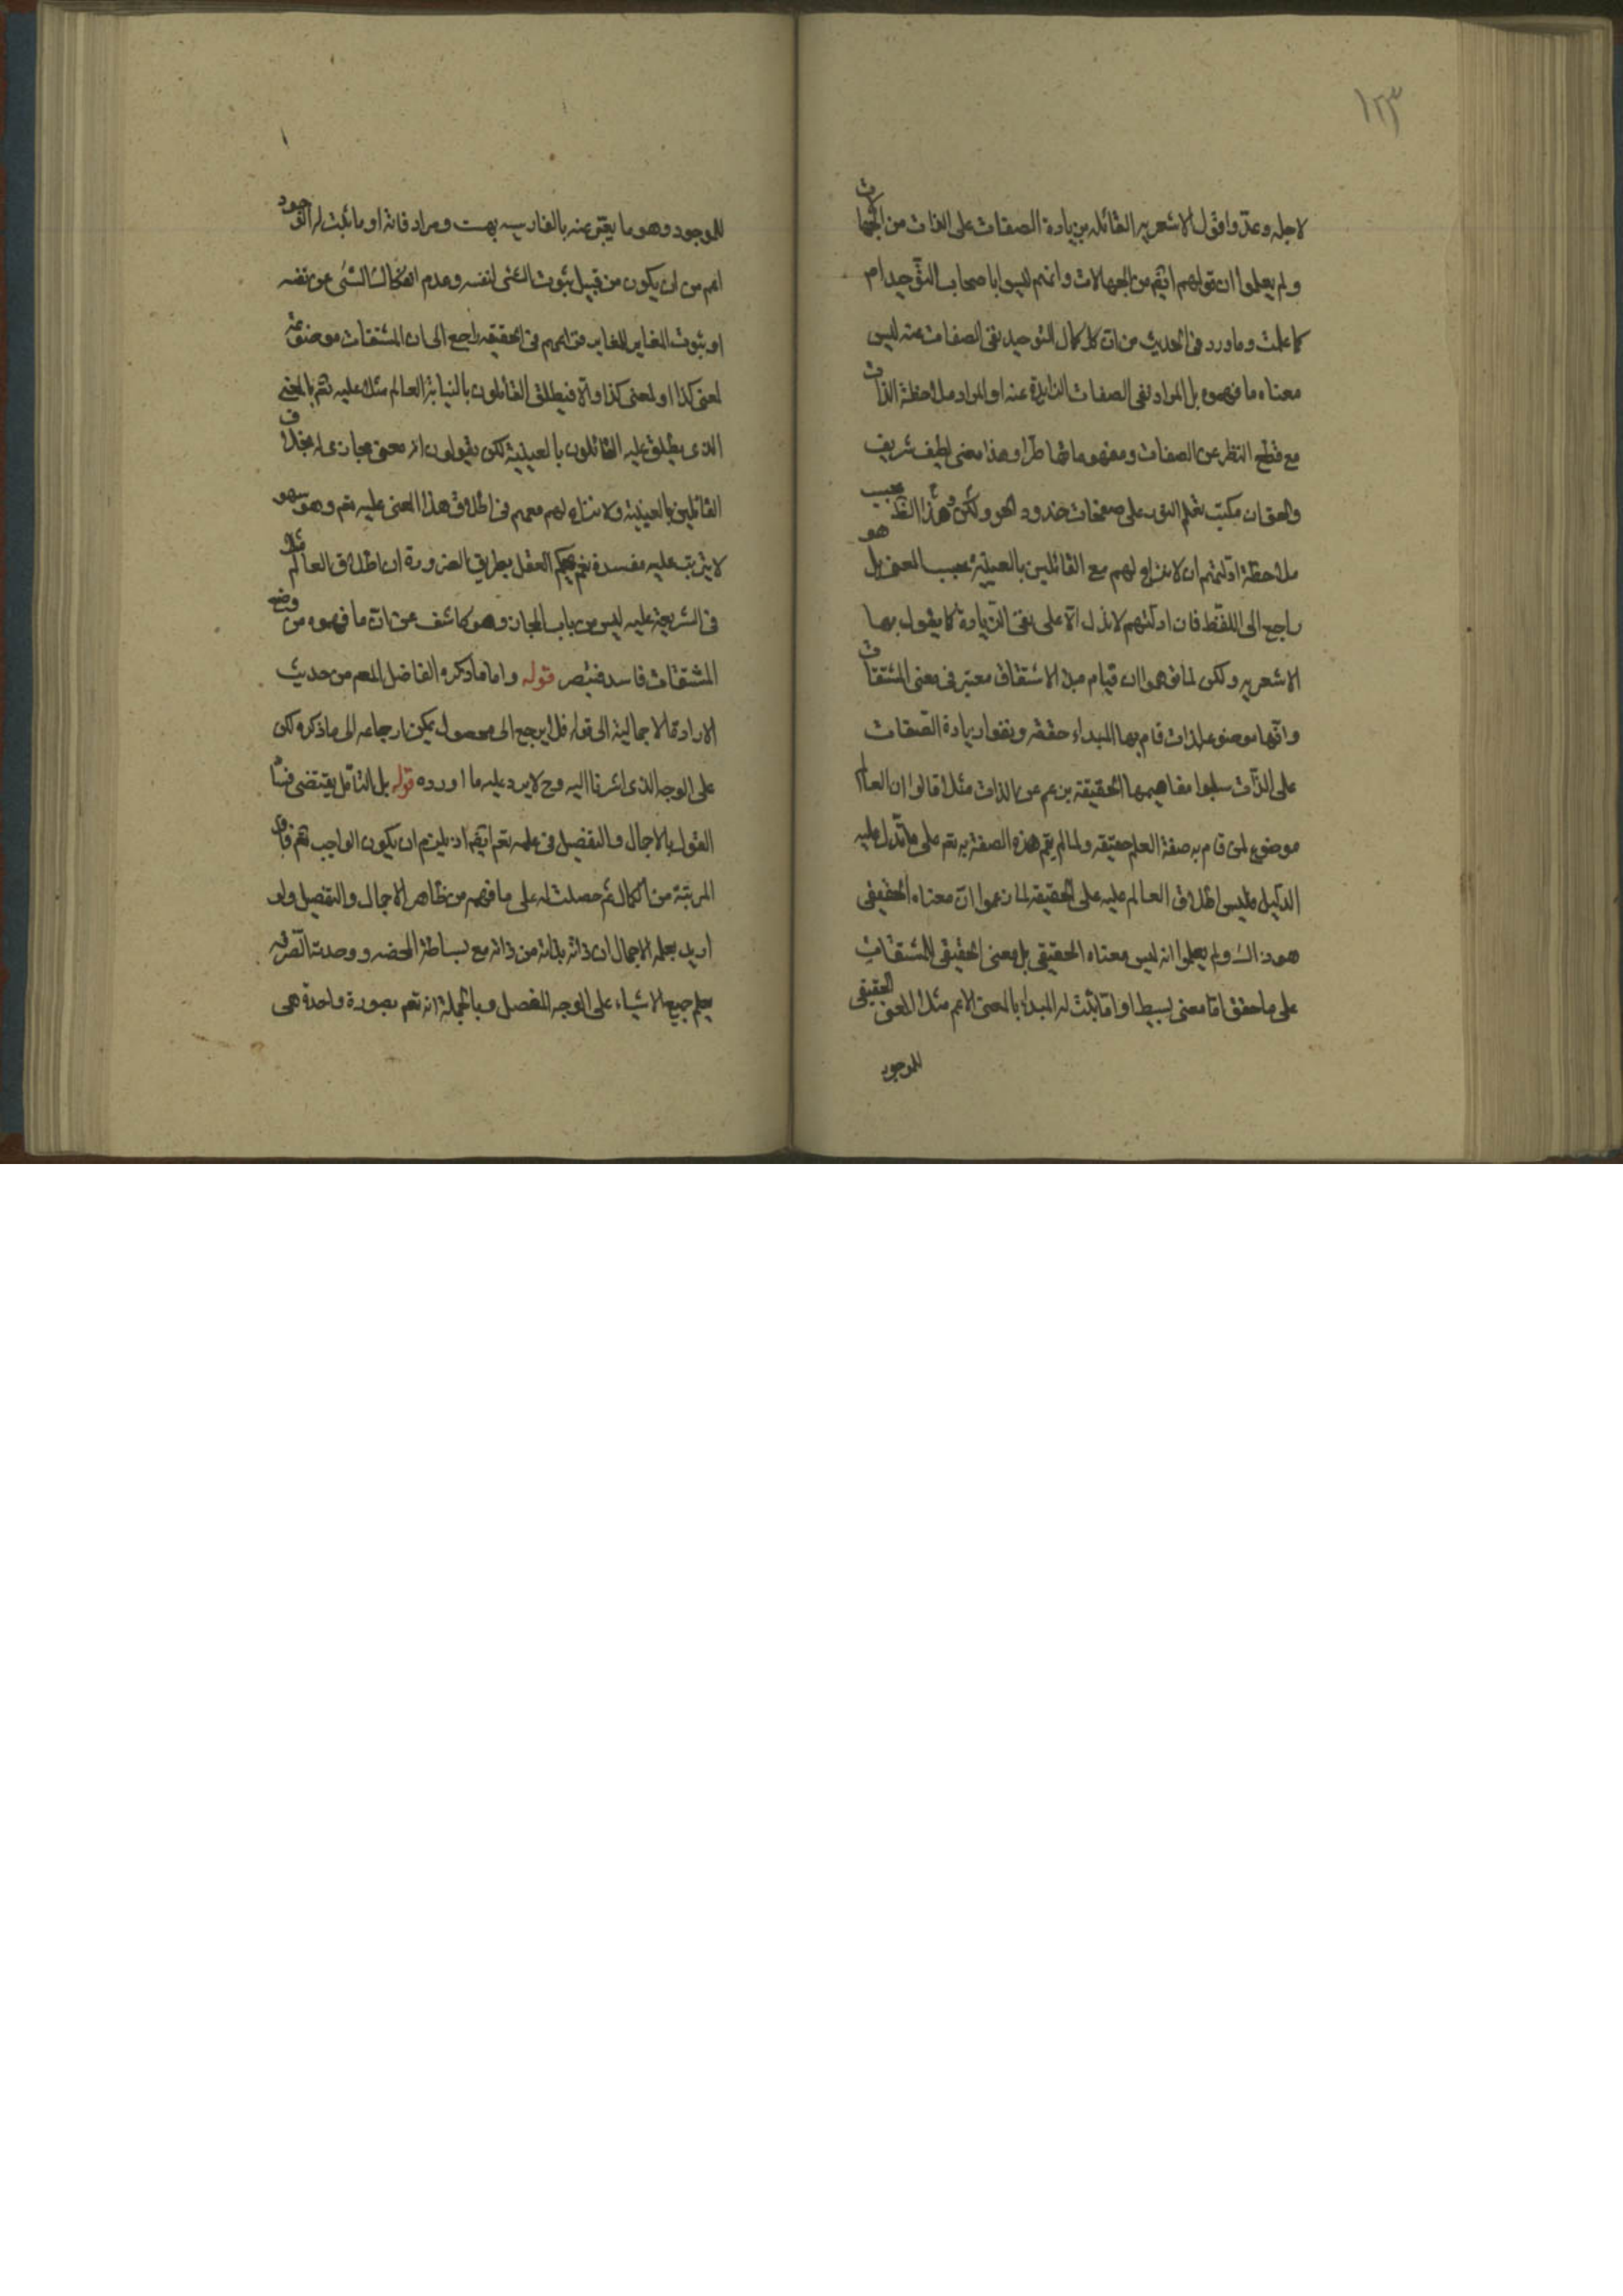 ١٢٣
لاجله وعدّوا قول الاشعريه القائله بزيادة الصفات على الذات من الجهات
ولم يعلموا ان قولهم ايضم من الجهالات وانهم ليسوا باصحاب التوحيد ام
كما علمت وما ورد فى الحديث من ان كل كمال التوحيد نفى الصفات عنه ليس
معناه ما فهموه بل المراد نفى الصفات الزايدة عنه او المراد ملاحظة الذات
مع قطع النظر عن الصفات ومفهوماتها طرا وهذا معنى لطيف شريف
والحق ان مكتب بقلم النور على صفحات خدود الحور ولكن هذا النظر بحسب
ملاحظة ادلتهم ان لا نزاع لهم مع القائلين بالعينية بحسب المعنى بل هو
راجع الى اللفظ فان ادلتهم لا تدل الا على نفى الزيادة كما يقول بها
الاشعريه ولكن لما فهموا ان قيام مبدء الاشتقاق معتبر فى معنى المشتقات
وانها موضوعة لذات قام بها المبداء حقيقة ونفوا زيادة الصفات
على الذات سلبوا مفاهيمها الحقيقيه بزعمهم عن الذات مثلا قالوا ان العالم
موضوع لمن قام به صفة العلم حقيقه ولما لم يقم هذه الصفة به تعم على ما تدل عليه
الدليل فليس اطلاق العالم عليه على الحقيقه لما زعموا ان معناه الحقيقى
هو ذاك ولم يعلموا انه ليس معناه الحقيقى بل معنى الحقيقى للمشتقات
على ما حقق اما معنى بسيط او ما ثبت له المبداء بالمعنى الاعم مثلا المعنى الحقيقى
للموجود
للموجود وهو ما يعبر عنه بالفارسيه بهست ومرادفاته او ما ثبت له الوجود
اعم من ان يكون من قبيل ثبوت الشئ لنفسه وعدم انفكاك الشئ عن نفسه
او ثبوت المغاير للمغاير فنزاعهم فى الحقيقه راجع الى ان المشتقات موضوعة
لمعنى كذا او لمعنى كذا والا فيطلق القائلون بالنيابة العالم مثلا عليه تعم بالمعنى
الذى يطلق عليه القائلون بالعينية لكن يقولون انه معنى مجازى له بخلاف
القائلين بالعينية ولا نزاع لهم معهم فى اطلاق هذا المعنى عليه تعم وهو سهو
لا يترتب عليه مفسدة نعم يحكم العقل بطريق الضرورة ان اطلاق العالم مثلا
فى الشريعة عليه ليس من باب المجاز وهو كاشف عن ان ما فهموه من وضع
المشتقات فاسد فتبصر قوله واما ما ذكره الفاضل المعم من حديث
الارادة الاجمالية الى قوله فلا يرجع الى محصول يمكن ارجاعه الى ما ذكره لكن
على الوجه الذى اشرنا اليه وح لا يرد عليه ما اورده قوله بل التامل يقتضى فسا
القول بالاجمال والتفصيل فى علمه تعم ايضم اذ يلزم ان يكون الواجب تعم فاقد
المرتبة من الكمال ثم حصلت له على ما فهم من ظاهر الاجمال والتفصيل ولو
اريد بعلمه الاجمالى ان ذاته بذاته من ذاته مع بساطة المحضه ووحدته الصرفه
يعلم جميع الاشياء على الوجه المفصل وبالجملة انه تعم بصورة واحدة هى